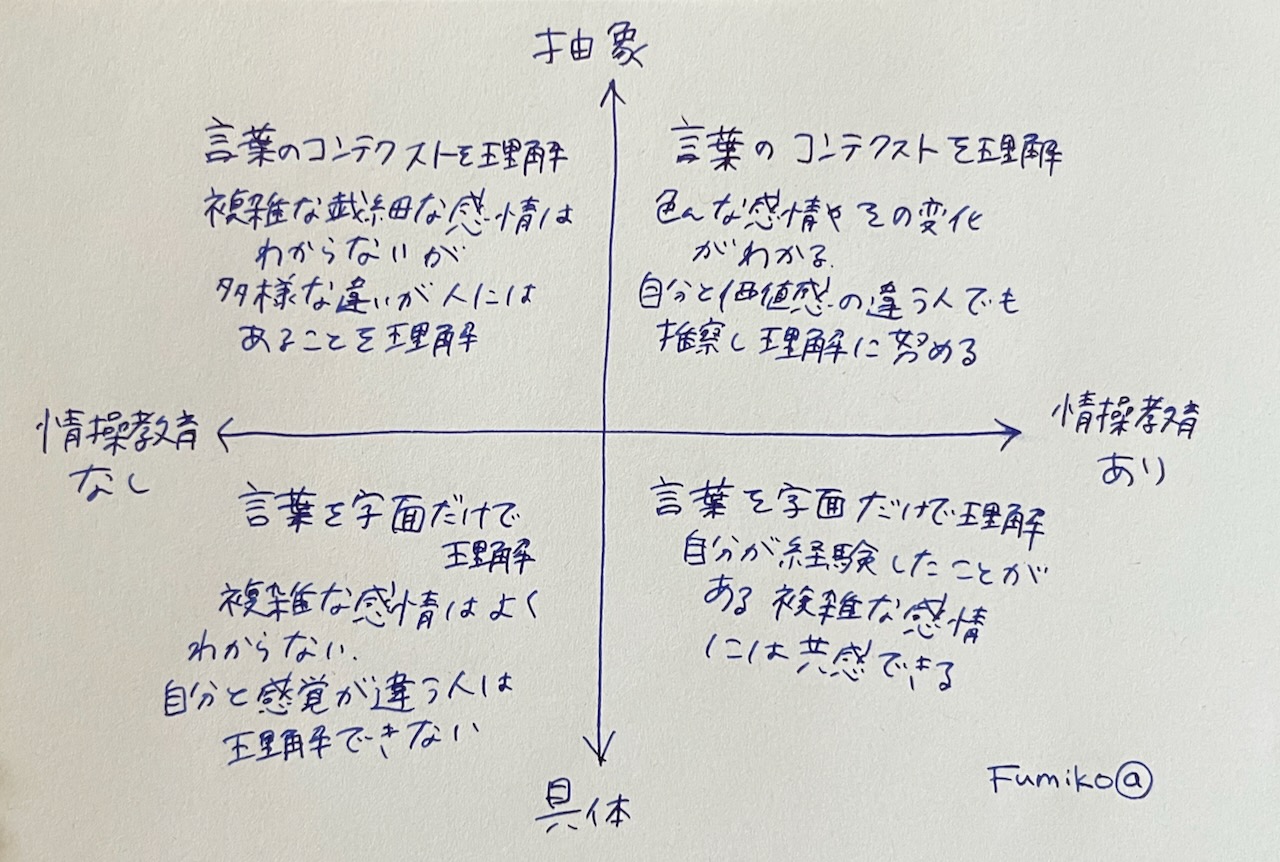 抽象
言葉のコンテクストを理解
複雑な繊細な感情は
わからないが
多様な違いが人には
あることを理解
言葉のコンテクストを理解
色んな感情やその変化
がわかる.
自分と価値感の違う人でも
推察し理解に努める
情操教育
なし
情操教育
あり
言葉を字面だけで
理解
複雑な感情はよく
わからない.
自分と感覚が違う人は
理解できない
言葉を字面だけで理解
自分が経験したことが
ある複雑な感情
には共感できる
具体
Fumikoⓐ